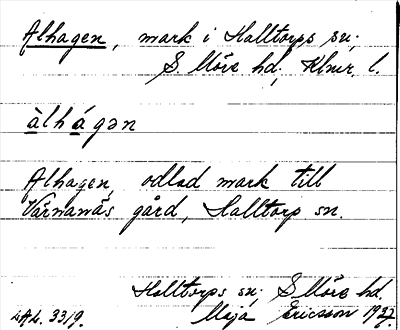 Alhagen, mark i Halltorps sn;
S. Möre hd, Klmr. l.
àlhágən
Alhagen, odlad mark till
Värnanäs gård, Halltorp sn.
Halltorps sn; S Möre hd.
ULL. 3319. Maja Ericsson 1927.